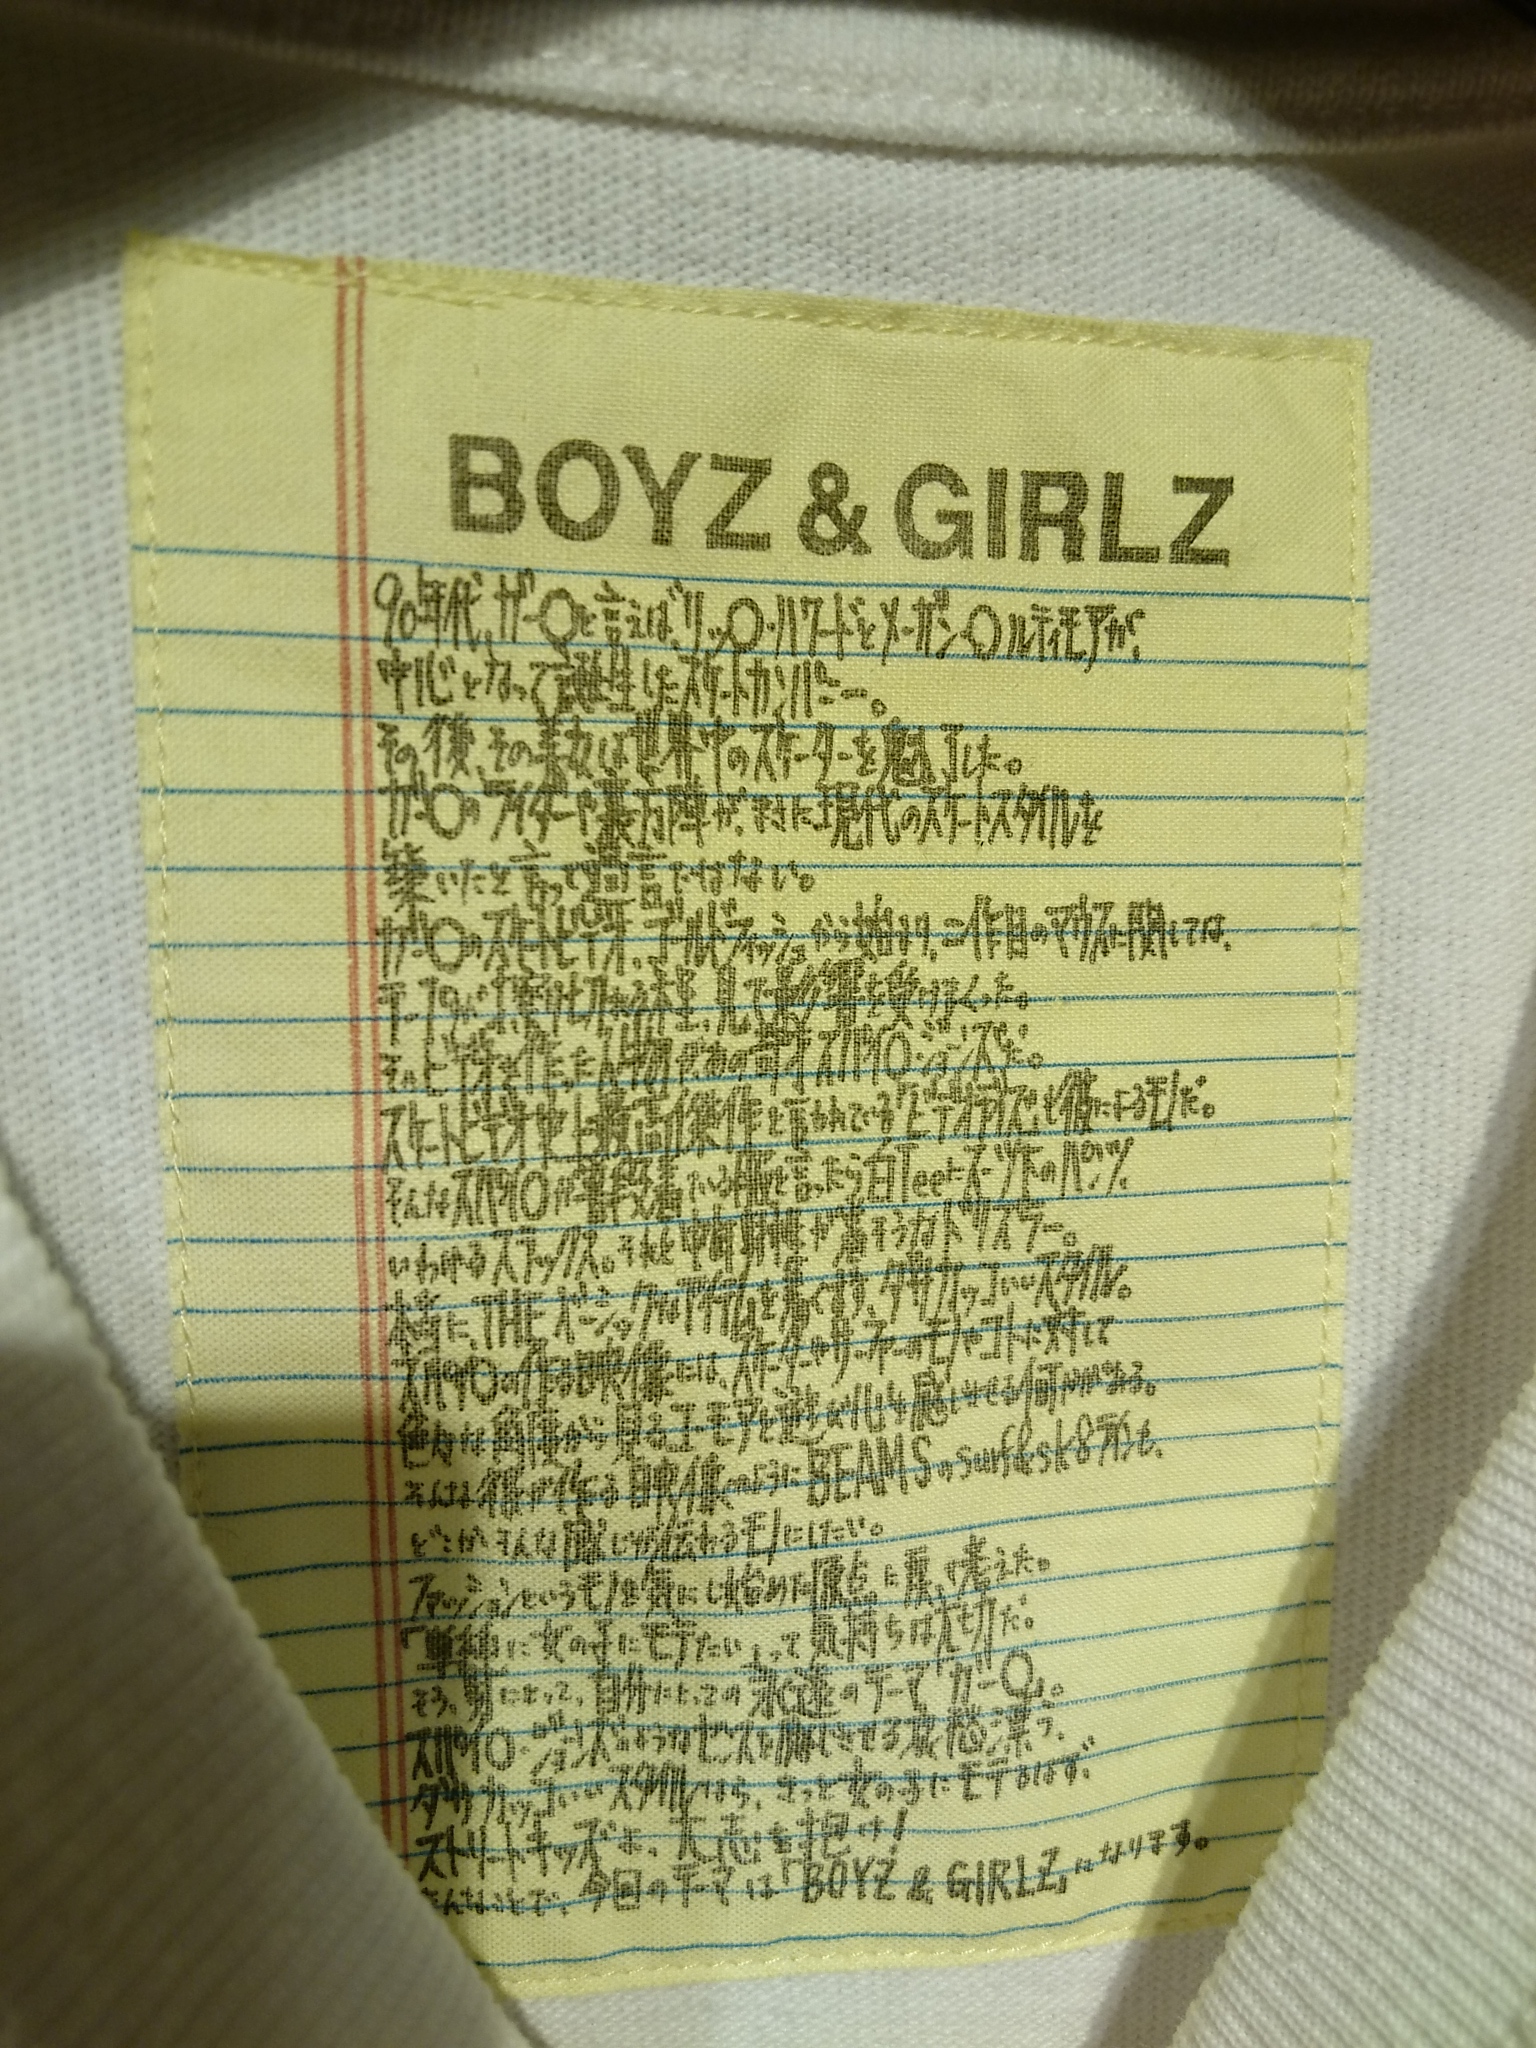 BOYZ & GIRLZ
90年代、ガー〇と言えば、リッ〇・ハワードとメーガン〇ルティモアが、
中心となって誕生したスケートカンパニー。
その後、その美女は世界中のスケーターを魅了した。
ガー〇のライダーや裏方陣が、まさに現代のスケートスタイルを
築いたと言って過言ではない。
ガー〇のスケートビデオ、ゴールドフィッシュから始まり、二作目のマウスに関しては、
テープが擦り切れる程、見て影響を受けまくった。
そのビデオを作った人物があの奇才スパイ〇・ジョーンズだ。
スケートビデオ史上最高傑作と言われている「ビデオデイズ」も彼によるモノだ。
そんなスパイ〇が普段着ている服と言ったら白Teeにスーツ下のパンツ、
いわゆるスラックス。それと中南米が着そうなドリズラー。
本当に、THE ベーシックなアイテムを着くずす、ダサカッコいいスタイル。
スパイ〇の作る映像には、スケーターやサーファーのモノやコトに対して
色々な角度から見るユーモアと遊び心を感じさせる何かがある。
そんな彼が作る映像のように BEAMSのsurf&sk8別注も、
どこかそんな感じが伝わるモノにしたい。
ファッションというモノを気にし始めた原点に戻って考えた。
「単純に女の子にモテたい」って気持ちは大切だ。
そう、男にとって、自分にとっての永遠のテーマ「ガー〇」。
スパイ〇・ジョーンズのようなセンスを感じさせる哀愁漂う、
ダサカッコいいスタイルなら、きっと女の子にモテるはず。
ストリートキッズよ、大志を抱け!
そんないとで、今回のテーマは「BOYZ & GIRLZ」になります。